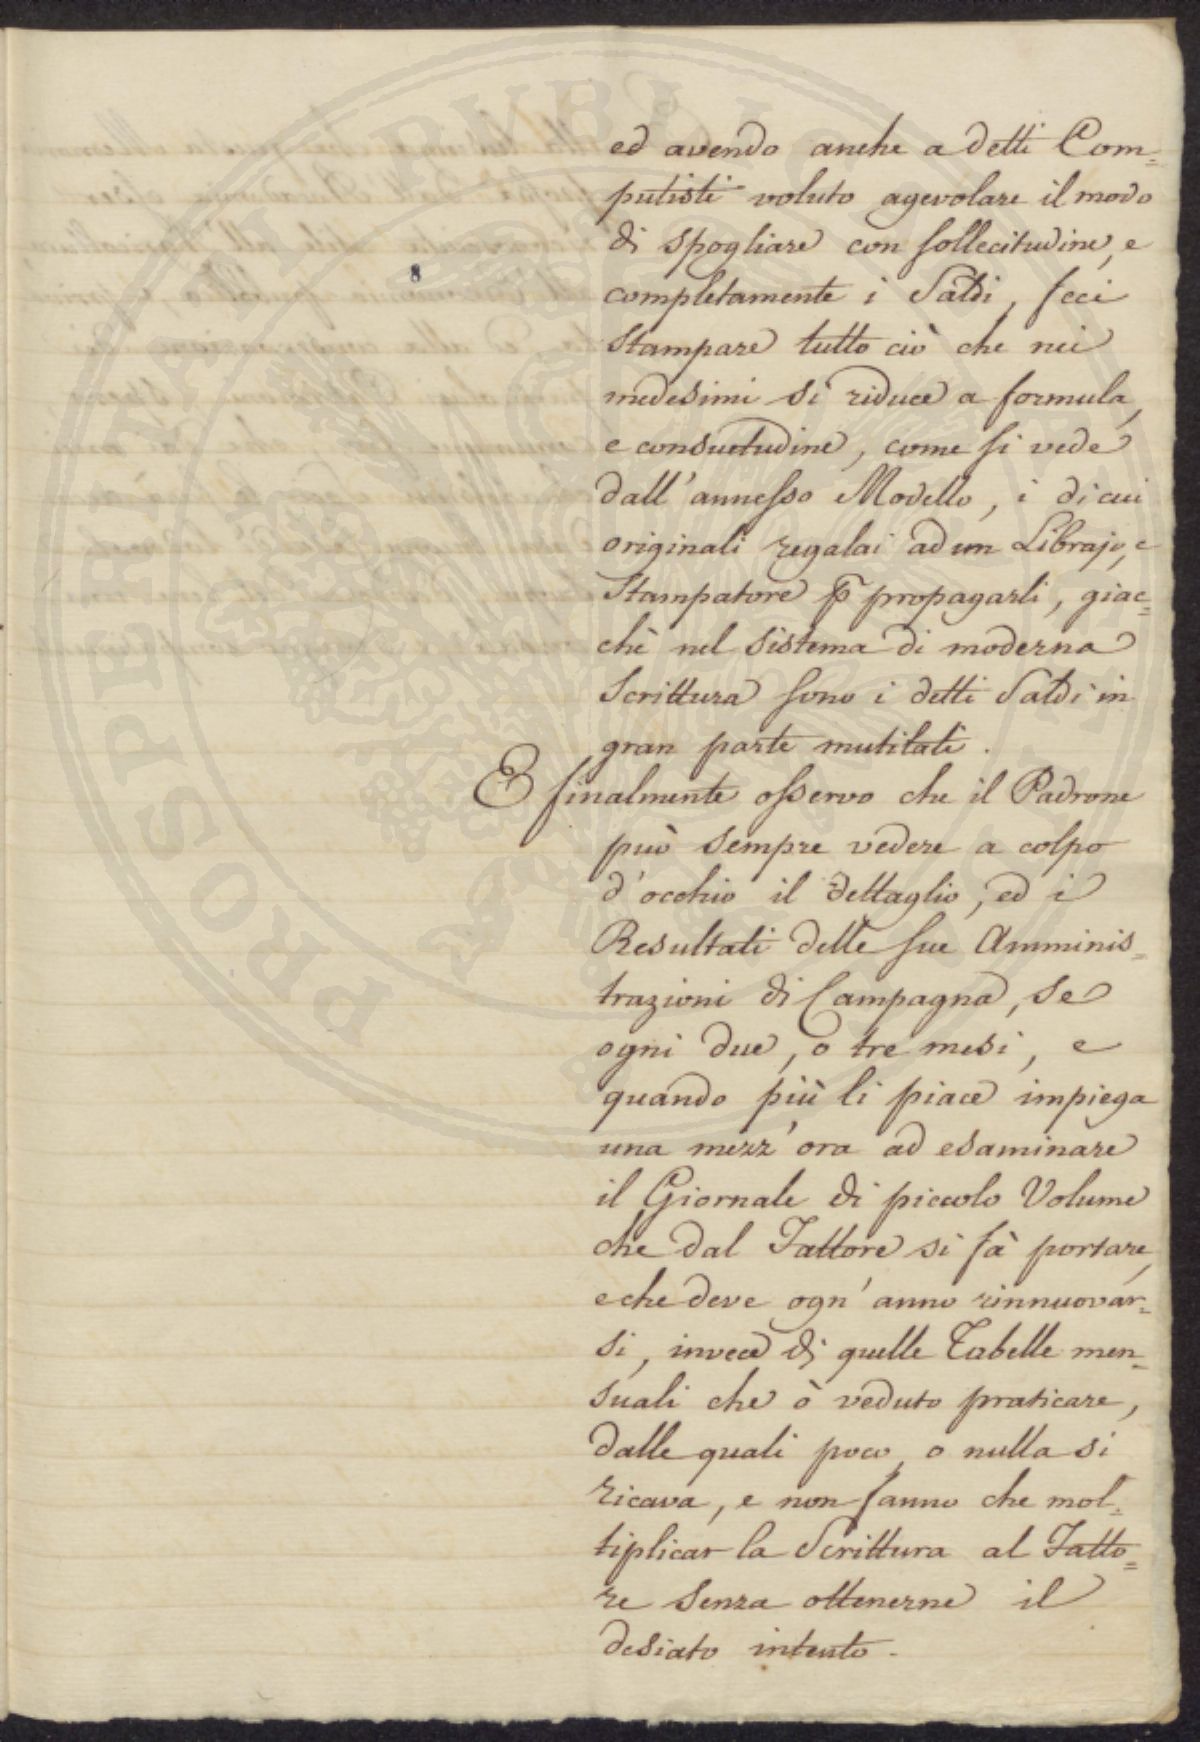 PROSPERITATI PUBLICAE AUGENDAE
ed avendo anche a detti Com=
putisti voluto agevolare il modo
di spogliare con sollecitudine, e
8
completamente i Saldi, feci
Stampare tutto ciò che nei
medesimi si riduce a formula,
e consuetudine, come si vede
dall'annesso Modello, i di cui
originali regalai ad un Librajo, e
Stampatore p propagarli, giac=
chè nel sistema di moderna
Scrittura sono i detti Saldi in
gran parte mutilati.
E finalmente osservo che il Padrone
può sempre vedere a colpo
d'occhio il dettaglio, ed i
Resultati delle sue Amminis=
trazioni di Campagna, se
ogni due, o tre mesi, e
quando più li piace impiega
una mezz'ora ad esaminare
il Giornale di piccolo Volume
che dal Fattore si fà portare,
e che deve ogn'anno rinnuovar=
si, invece di quelle Tabelle men=
suali che ò veduto praticare,
dalle quali poco, o nulla si
ricava, e non fanno che mol=
tiplicar la Scrittura al Fatto=
re senza ottenerne il
desiato intento.